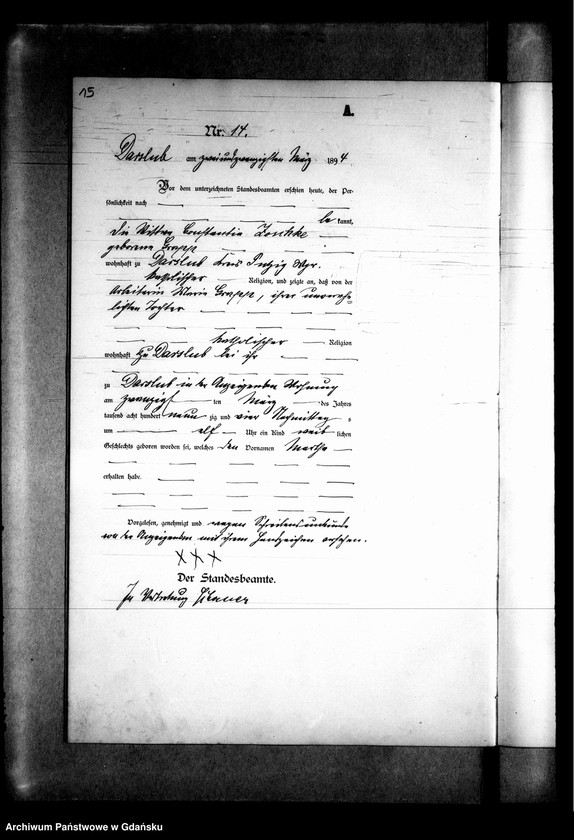 15
A.
Nr. 14.
Darslub am zweiundzwanzigsten März 1894
Vor dem unterzeichneten Standesbeamten erschien heute, der Per-
sönlichkeit nach
be kannt,
die Wittwe Constantia
geborene
wohnhaft zu Darslub Kreis Putzig Wpr.
katholischer Religion, und zeigte an, daß von der
Arbeiterin Marie, ihrer unverehe-
lichten Tochter
katholischer Religion
wohnhaft zu Darslub bei ihr
zu Darslub in der Anzeigenden Wohnung
am zwanzigsten März des Jahres
tausend acht hundert neun zig und vier Nachmittags
um elf Uhr ein Kind weib lichen
Geschlechts geboren worden sei, welches den Vornamen Martha
erhalten habe.
Vorgelesen, genehmigt und wegen Schreibensunkunde
von der Anzeigenden mit ihrem Handzeichen versehen.
XXX
Der Standesbeamte.
In Vertretung
Archiwum Państwowe w Gdańsku